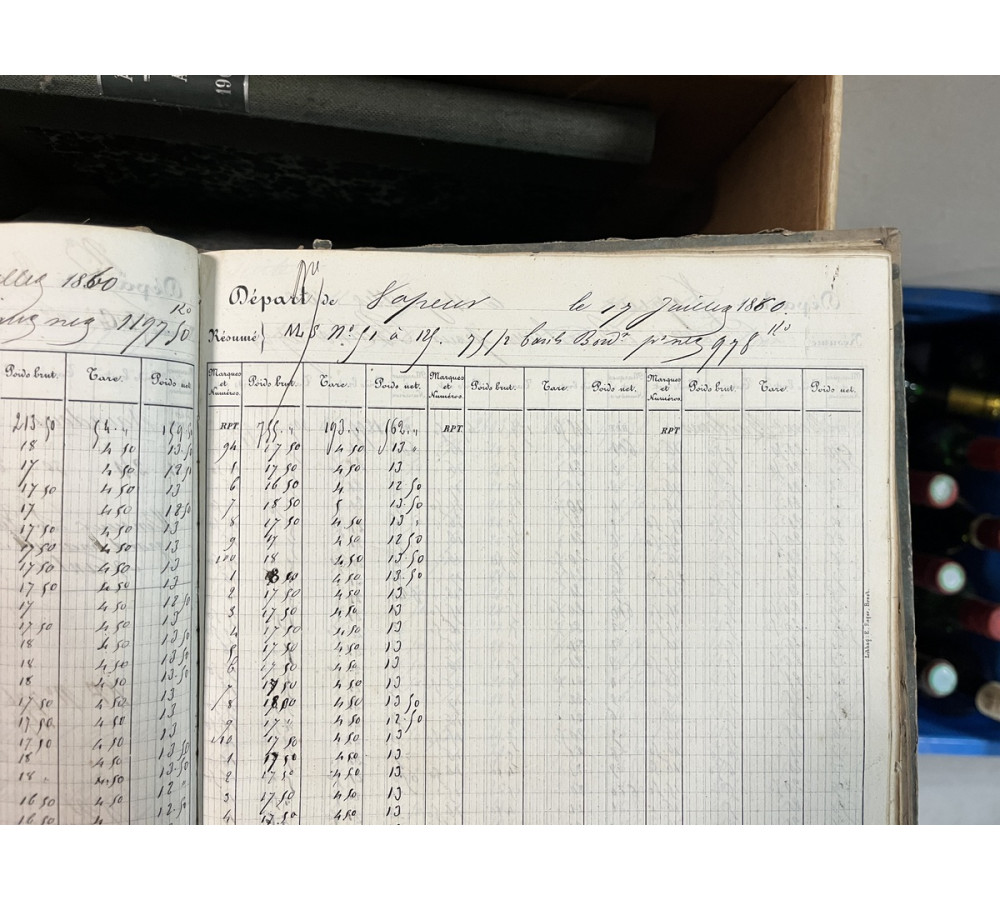 190
1860
Ko
net 1197.50
Poids brut. Tare. Poids net.
213 50 54 " 159 50
18 4 50 13.50
17 4 50 12 50
17 50 4 50 13
17 4 50 12 50
17 50 4 50 13
17 50 4 50 13
17 50 4 50 13
17 50 4 50 13
17 4 50 12 50
17 50 4 50 13
18 4 50 13 50
18 4 50 13 50
18 4 50 13.50
17 50 4 50 13
17 50 4 50 13
17 50 4 50 13
18 4 50 13 50
18 " 4.50 13 50
16 50 4 50 12 "
16 50 4 12.50
Départ de Vapeur le 17 Juillet 1860.
Résumé M S No. 51 à 125. 75 1/2 barils Bordx. pt. net 978 Ko
Marques et Numéros. Poids brut. Tare. Poids net. Marques et Numéros. Poids brut. Tare. Poids net. Marques et Numéros. Poids brut. Tare. Poids net.
RPT 755 " 193 " 562 " RPT. RPT
94 17 50 4 50 13 "
5 17 50 4 50 13
6 16 50 4 12 50
7 18 50 5 13.50
8 17 50 4 50 13 "
9 17 4 50 12 50
100 18 4 50 13.50
1 18 4 50 13.50
2 17 50 4 50 13
3 17 50 4 50 13
4 17 50 4 50 13
5 17 50 4 50 13
6 17 50 4 50 13
7 17 50 4 50 13
8 18 4 50 13 50
9 17 " 4 50 12.50
110 17 50 4 50 13
1 17 50 4 50 13
2 17 50 4 50 13
3 17 50 4 50 13
4 17 50 4 50 13